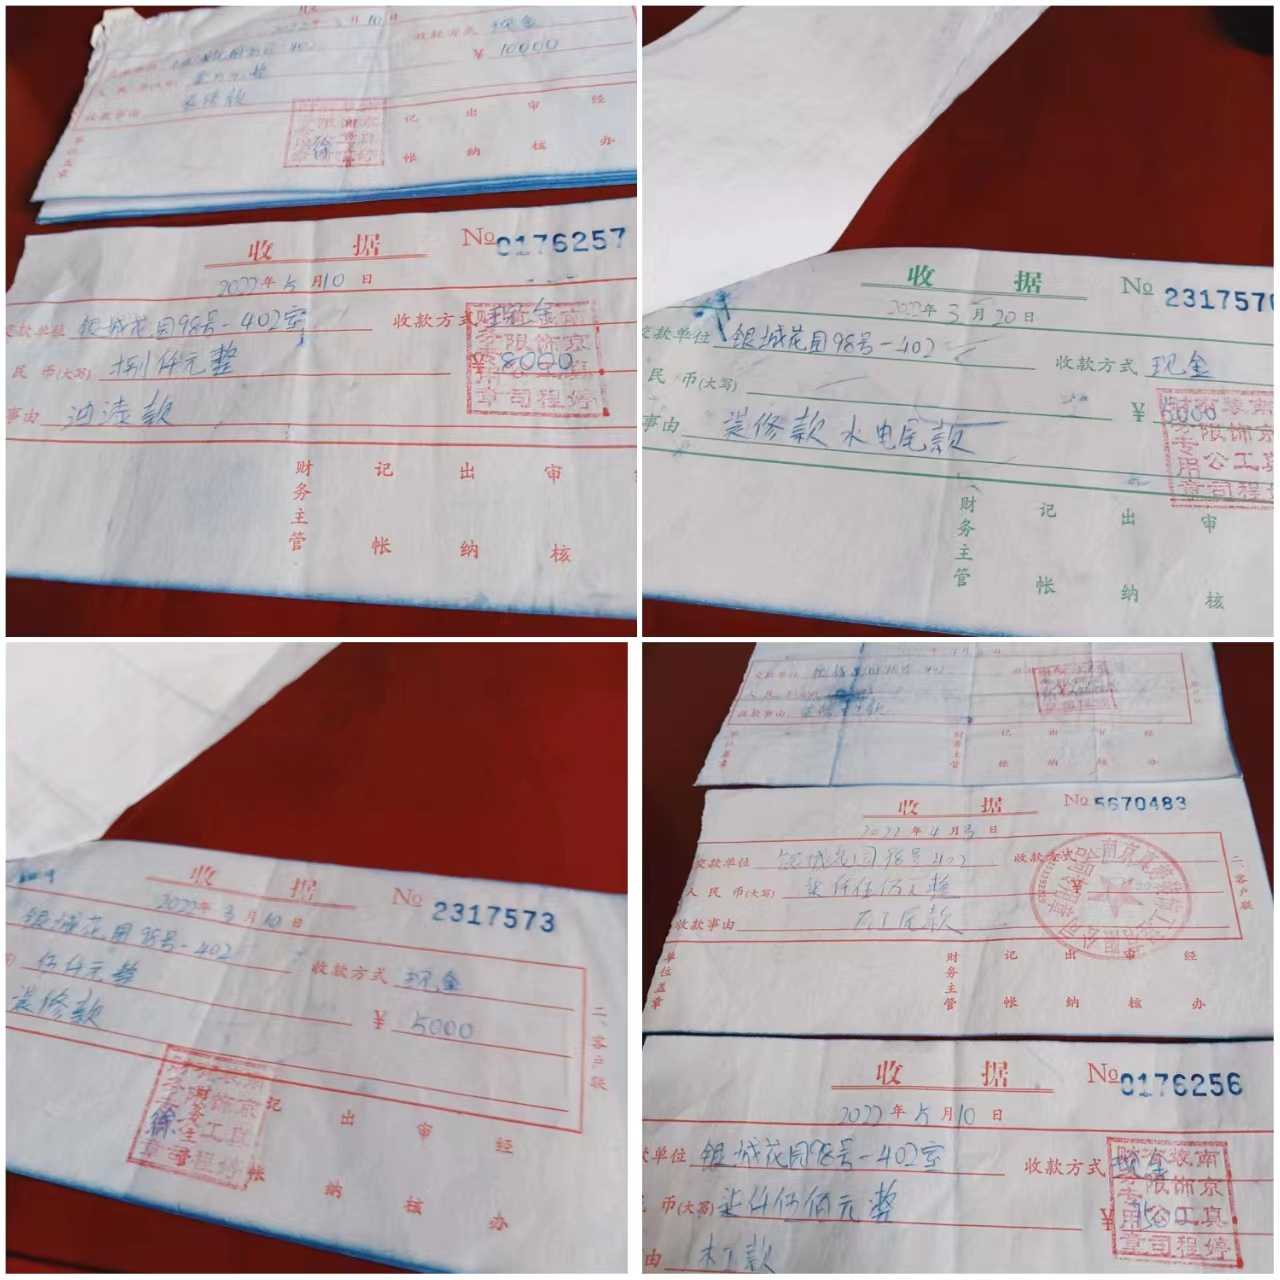 2022年3月10日
收款方式 现金
¥ 10000
人民币(大写)
收款事由 装修款
记 出 审 经
帐 纳 核 办
收 据 No 0176257
2022年5月10日
交款单位 银城花园98号-402室 收款方式 现金
民币(大写) 捌仟元整 ¥ 8000
事由 油漆款
财务主管 记 出 审
帐 纳 核
收 据 No 2317570
2022年3月20日
交款单位 银城花园98号-402 收款方式 现金
民币(大写) ¥ 5000
事由 装修款 水电尾款
财务主管 记 出 审
帐 纳 核
收 据 No 2317573
2022年3月10日
银城花园98号-402 收款方式 现金
伍仟元整 ¥ 5000
装修款
二、客户联
记 出 审 经
帐 纳 核 办
交款单位
人民币
收款事由
单位盖章 财务主管 记 出 审 经
帐 纳 核 办
收 据 No 5670483
2022年4月3日
交款单位 银城花园98号-402 收款方式
人民币(大写) 柒仟伍佰元整
收款事由 瓦工尾款
二、客户联
单位盖章 财务主管 记 出 审 经
帐 纳 核 办
收 据 No 0176256
2022年5月10日
款单位 银城花园98号-402室 收款方式 现金
币(大写) 柒仟伍佰元整 ¥ 7500
由 木工款